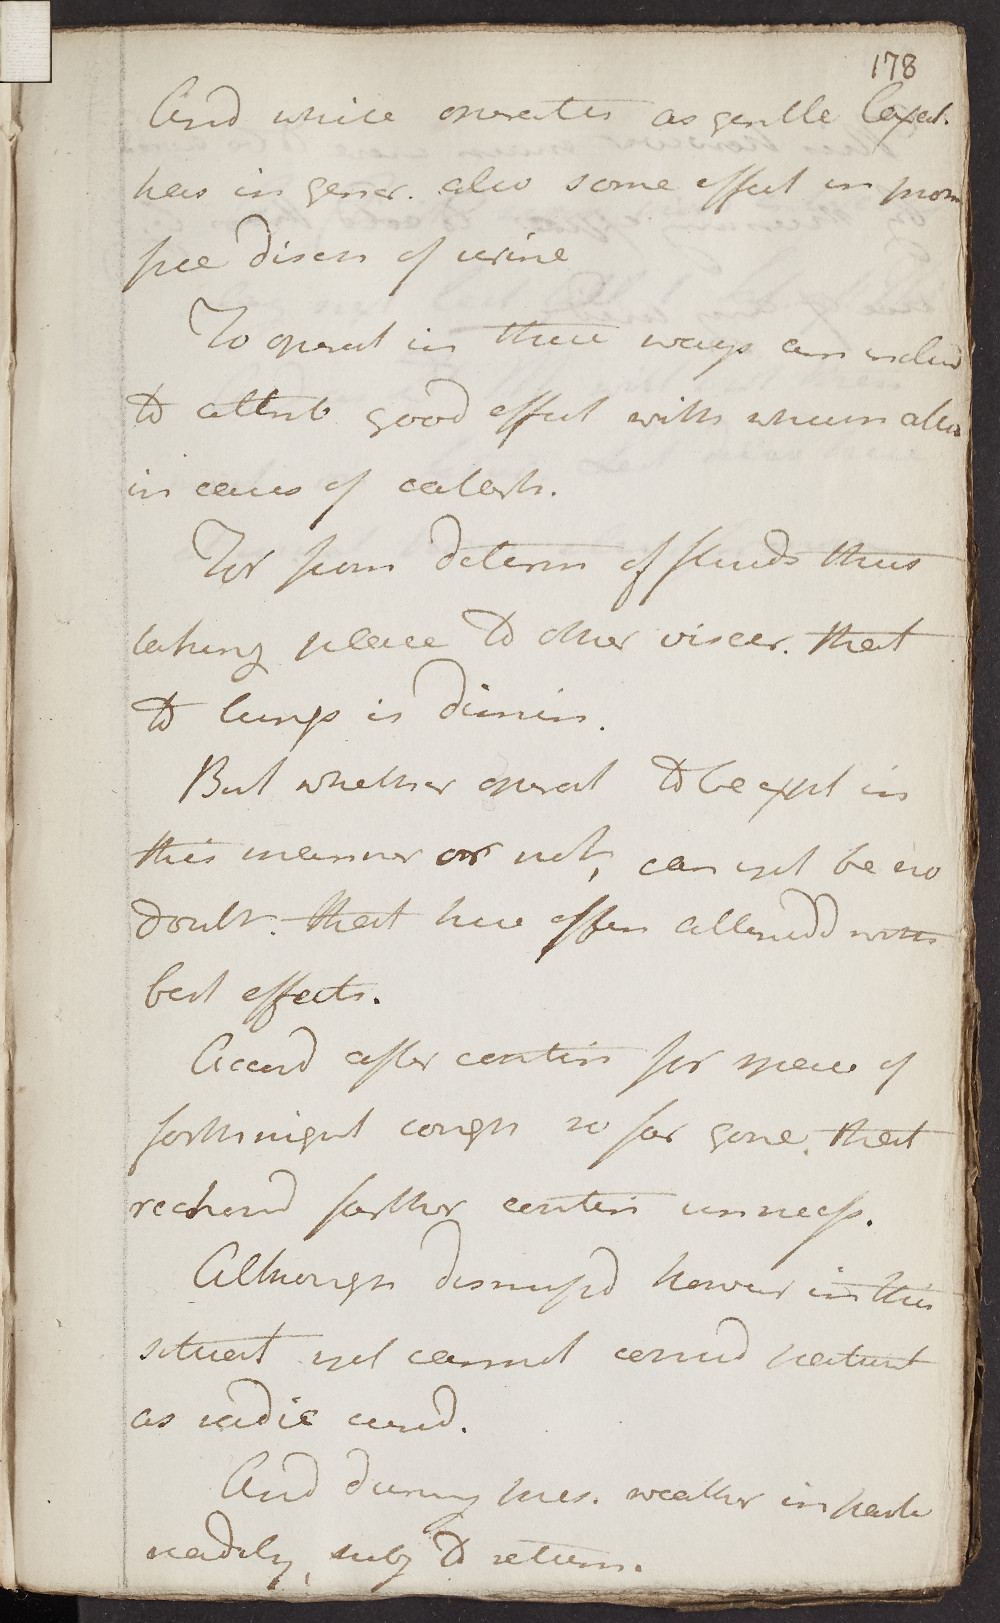 178
And while operates as gentle laxat.
has in gener. also some effect in prom
free disch of urine
To operat in these ways am inclin
to attrib good effect with whićh also
in cases of catarh.
For from determ of fluids thus
taking place to other viscer. that
to lungs is dimin.
But whether operat to be expl in
this manner or not, can yet be no
doubt. that hee often attendd with
best effects.
Accord after contin for space of
forthnight cough so far gone. that
reckond farther contin unnecess.
Although dismissd however in this
situat yet cannot consid patient
as radic cured.
And during pres. weather in part
readily, subj to return.